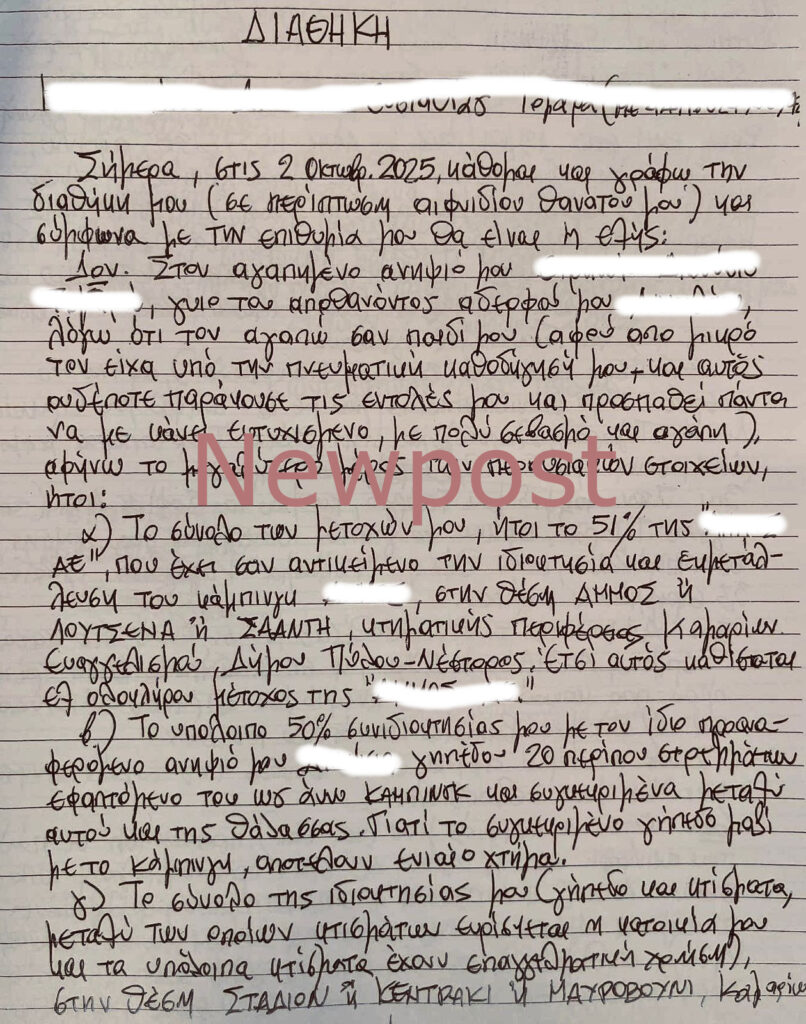 ΔΙΑΘΗΚΗ
Σήμερα, στις 2 Οκτωβρ. 2025, κάθομαι και γράφω την
διαθήκη μου (σε περίπτωση αιφνιδίου θανάτου μου) και
σύμφωνα με την επιθυμία μου θα είναι η εξής:
1ον. Στον αγαπημένο ανηψιό μου
, γυιο του αποθανόντος αδερφού μου ,
λόγω ότι τον αγαπώ σαν παιδί μου (αφού απο μικρό
τον είχα υπό την πνευματική καθοδήγησή μου, και αυτός
ουδέποτε παράκουσε τις εντολές μου και προσπαθεί πάντα
να με κάνει ευτυχισμένο, με πολύ σεβασμό και αγάπη),
αφήνω το μεγαλύτερο μέρος των περιουσιακών στοιχείων,
ήτοι:
α) Το σύνολο των μετοχών μου, ήτοι το 51% της "
ΑΕ", που έχει σαν αντικείμενο την ιδιοκτησία και εκμετάλ-
λευση του κάμπινγκ , στην θέση ΑΜΜΟΣ ή
ΛΟΥΤΣΕΝΑ ή ΣΑΑΝΤΗ, κτηματικής περιφέρεας Καμαρίων
Ευαγγελισμού, Δήμου Πύλου-Νέστορος. Έτσι αυτός καθίσταται
εξ ολοκλήρου μέτοχος της " "
β) Το υπόλοιπο 50% συνιδιοκτησίας μου με τον ίδιο προανα-
φερόμενο ανηψιό μου γηπέδου 20 περίπου στρεμμάτων
εφαπτόμενο του ως άνω ΚΑΜΠΙΝΓΚ και συγκεκριμένα μεταξύ
αυτού και της θάλασσας. Γιατί το συγκεκριμένο γήπεδο μαζί
με το κάμπινγκ, αποτελούν ενιαίο κτήμα.
γ) Το σύνολο της ιδιοκτησίας μου (γήπεδο και κτίσματα,
μεταξύ των οποίων κτισμάτων ευρίσκεται η κατοικία μου
και τα υπόλοιπα κτίσματα έχουν επαγγελματική χρήση),
στην θέση ΣΤΑΔΙΟΝ ή ΚΕΝΤΡΑΚΙ ή ΜΑΥΡΟΒΟΥΝΙ, Καμαρίων
Newpost